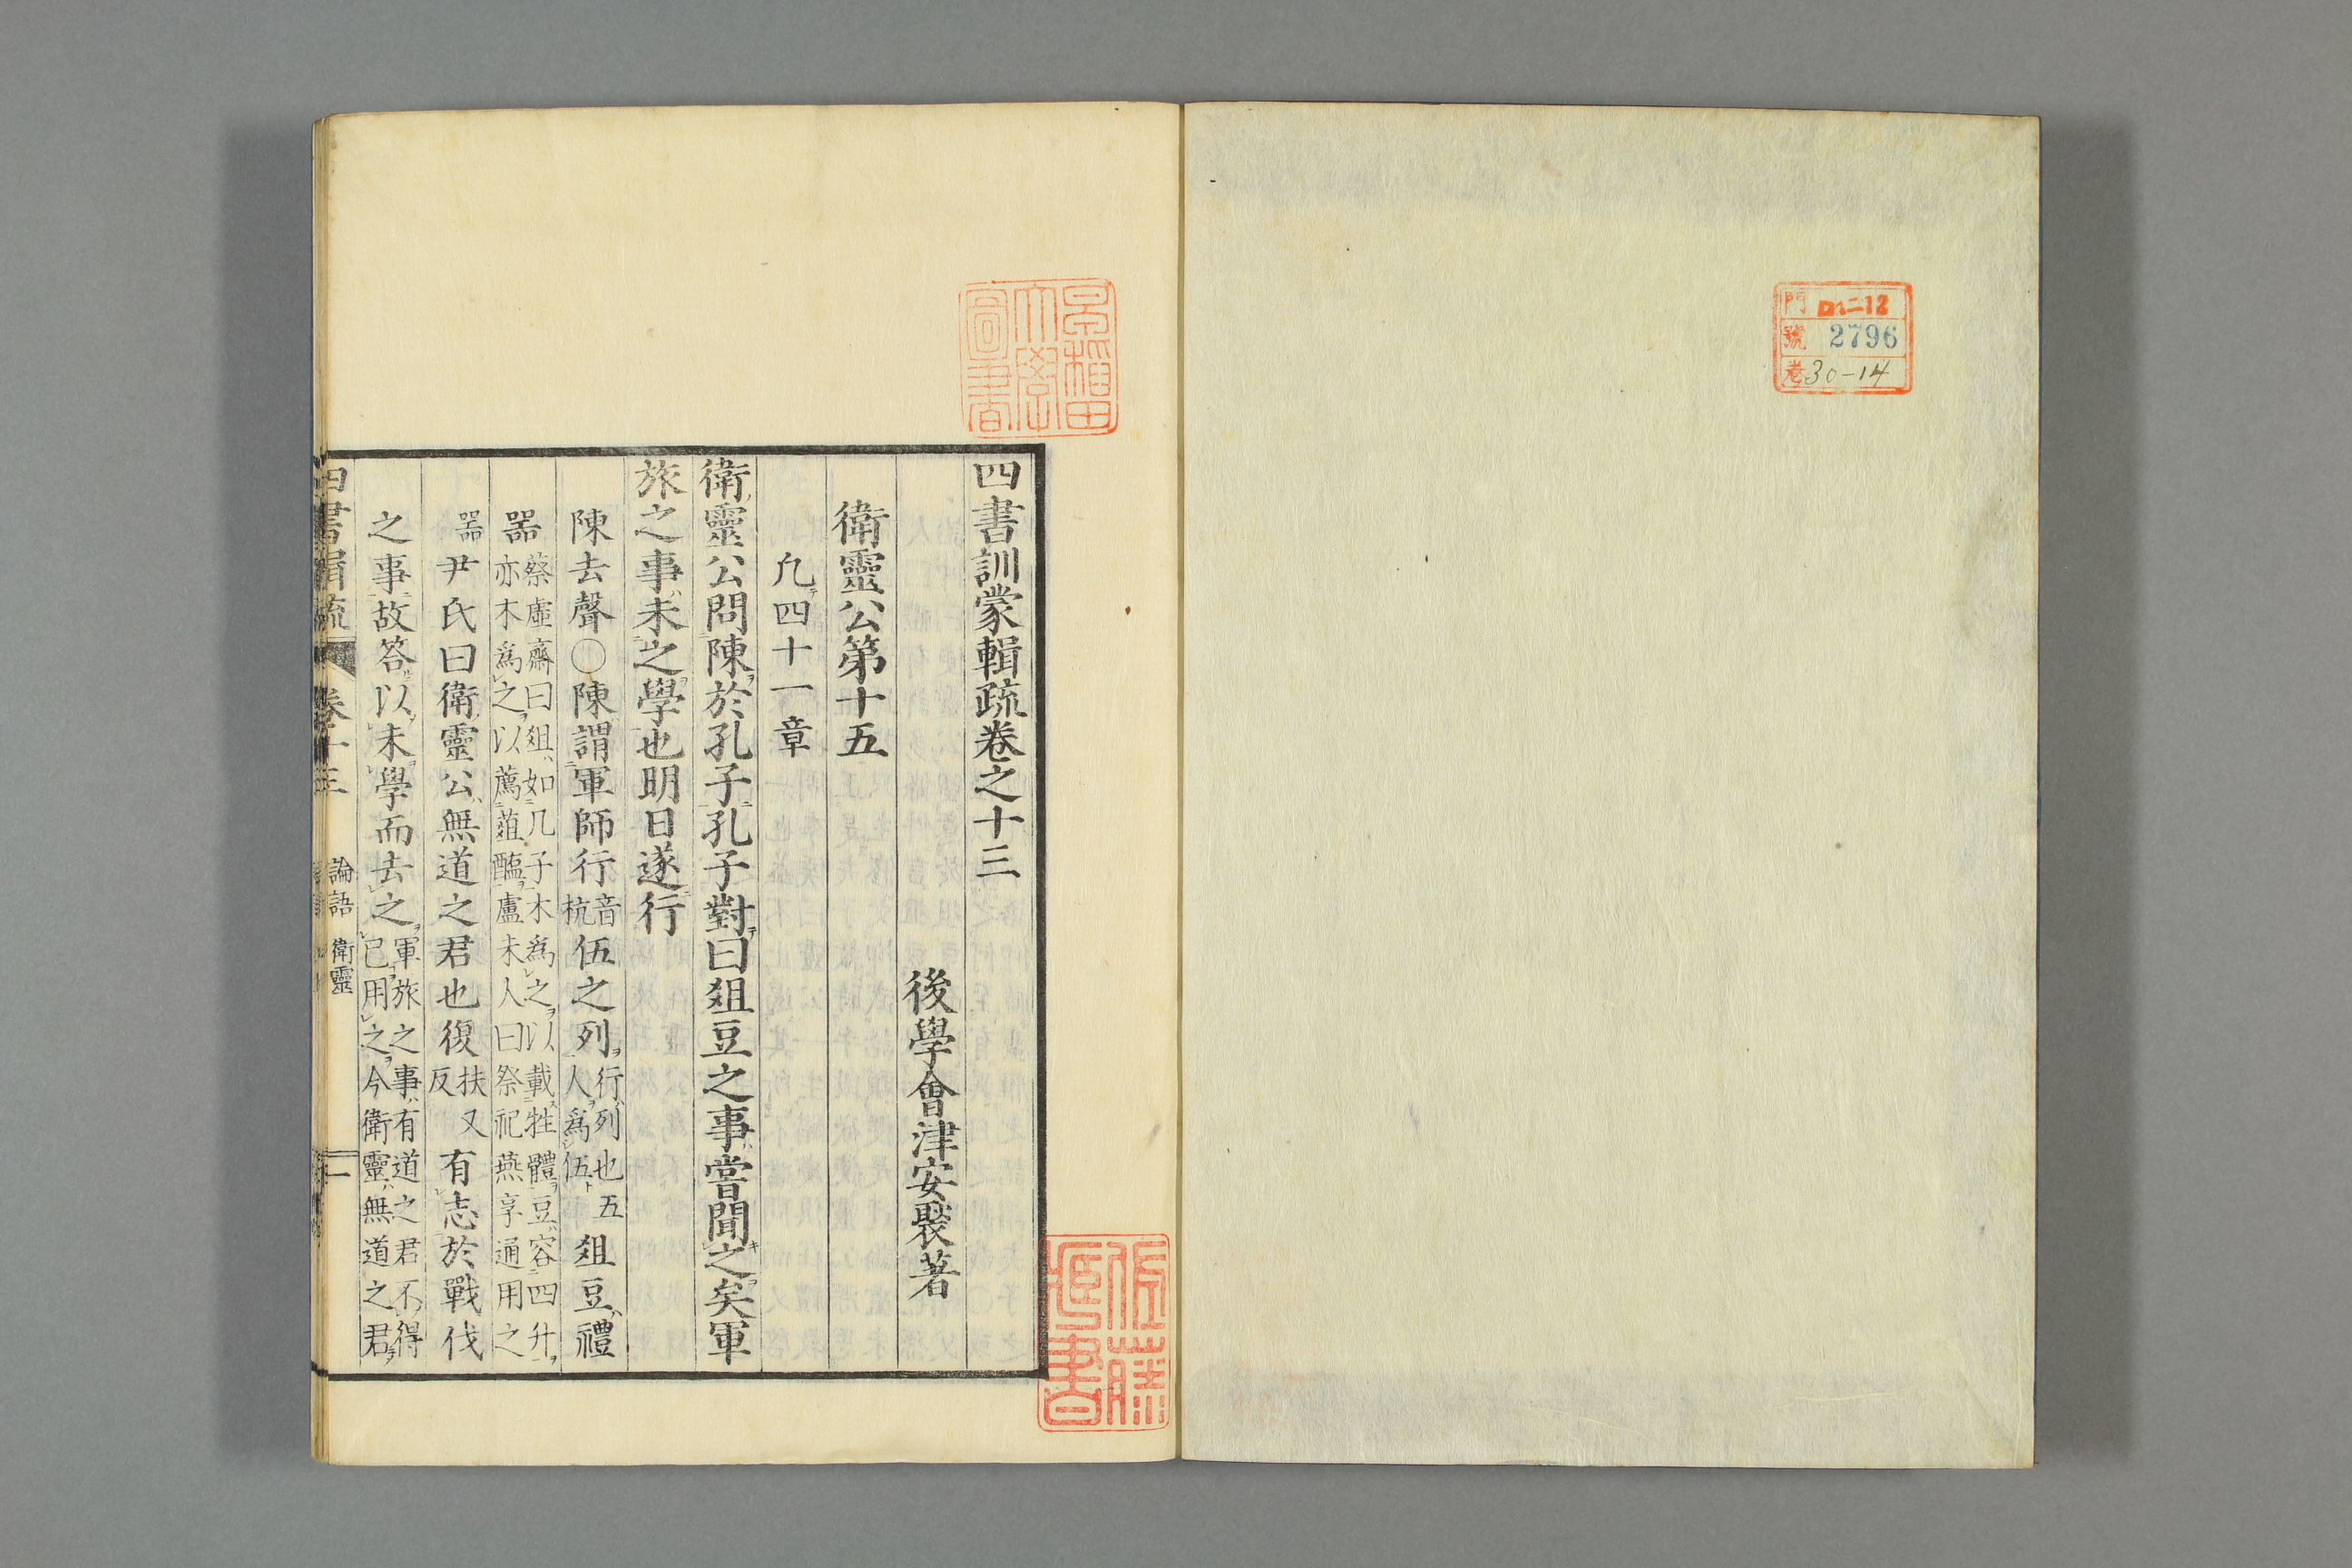 門 ロ12
號 2796
巻 30-14
早稲田大學圖書
四書訓蒙輯疏卷之十三
後學會津安褧著
衛靈公第十五
凡四十一章
衛靈公問陳於孔子孔子對曰俎豆之事嘗聞之矣軍
旅之事未之學也明日遂行
陳去聲○陳謂軍師行音杭伍之列行列也五人爲伍俎豆禮
器蔡虛齋曰俎如几子木爲之以載牲體豆容四升亦木爲之以薦菹醢盧未人曰祭祀燕享通用之
器尹氏曰衛靈公無道之君也復扶又反有志於戰伐
之事故答以未學而去之軍旅之事有道之君不得已用之今衛靈無道之君
四書輯疏 卷十三 論語 衛靈 一
佐藤
書